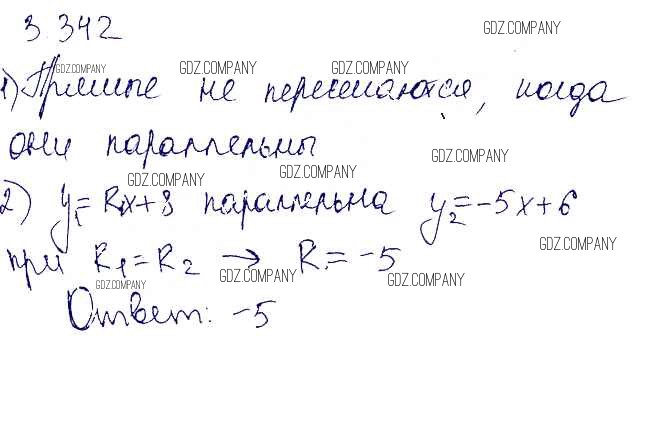 3.342
GDZ.COMPANY
GDZ.COMPANY GDZ.COMPANY GDZ.COMPANY
1) Прямые не пересекаются, когда
они параллельны
GDZ.COMPANY
GDZ.COMPANY GDZ.COMPANY
2) y₁=k₁x+8 параллельна y₂=-5x+6
GDZ.COMPANY
при k₁=k₂ → k=-5
GDZ.COMPANY GDZ.COMPANY GDZ.COMPANY
Ответ: -5